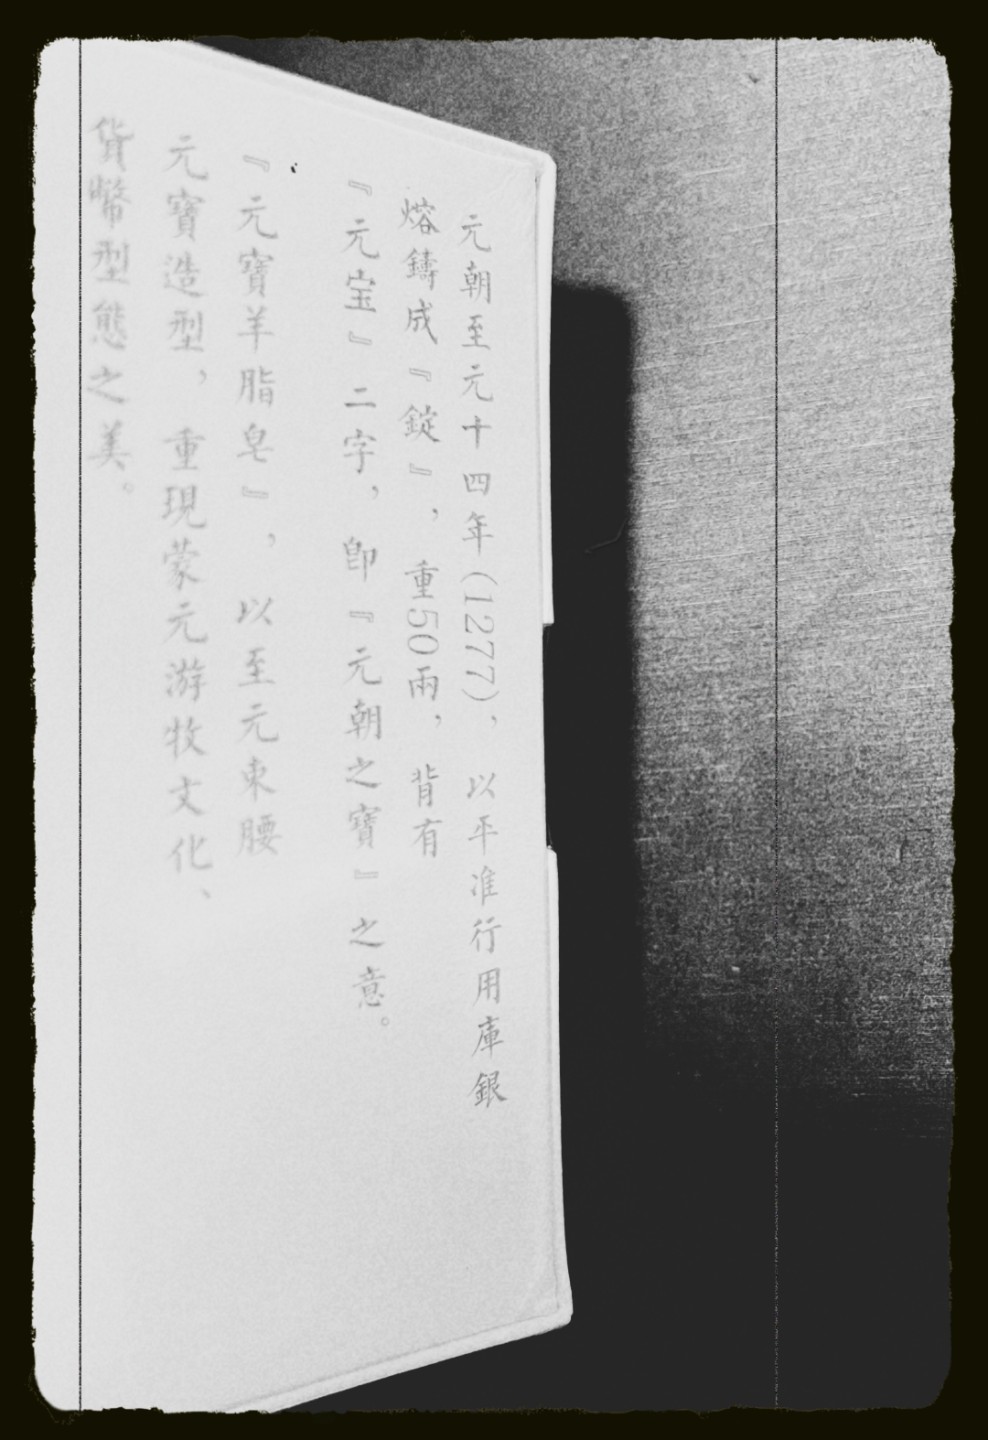 元朝至元十四年(1277)，以平准行用庫銀
熔鑄成『錠』，重50兩，背有
『元宝』二字，卽『元朝之寶』之意。
『元寶羊脂皂』，以至元束腰
元寶造型，重現蒙元游牧文化、
貨幣型態之美。